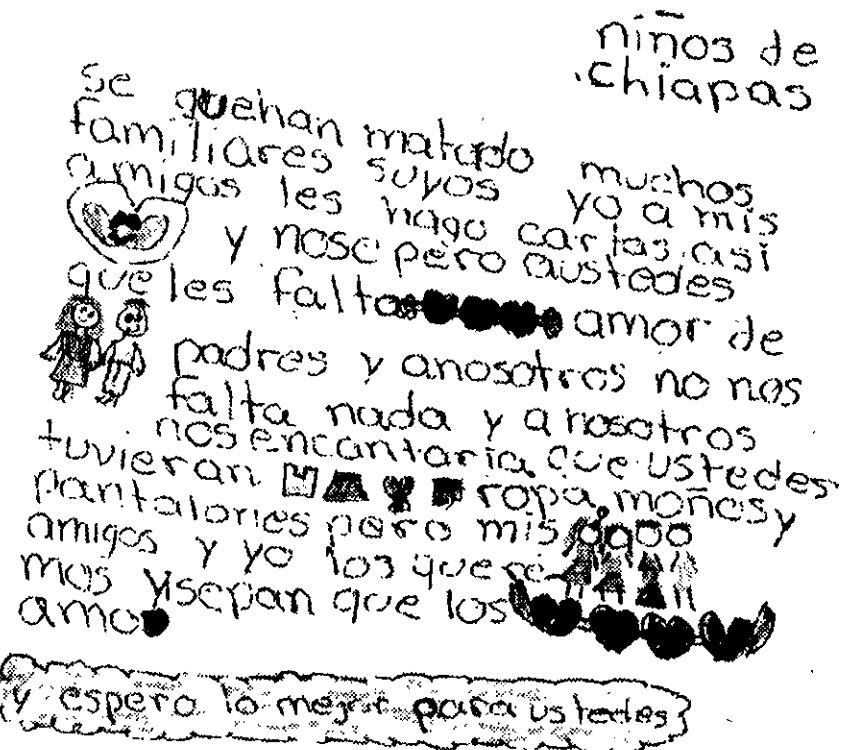 niños de
chiapas
se quehan matado muchos
familiares suyos yo a mis
amigos les hago cartas asi
y nose pero austedes
que les falta amor de
padres y anosotros no nos
falta nada y anosotros
nos encantaria que ustedes
tuvieran ropa, moñosy
pantalones pero mis
amigos y yo los quere
mos y sepan que los
amo
y espero lo mejor para ustedes